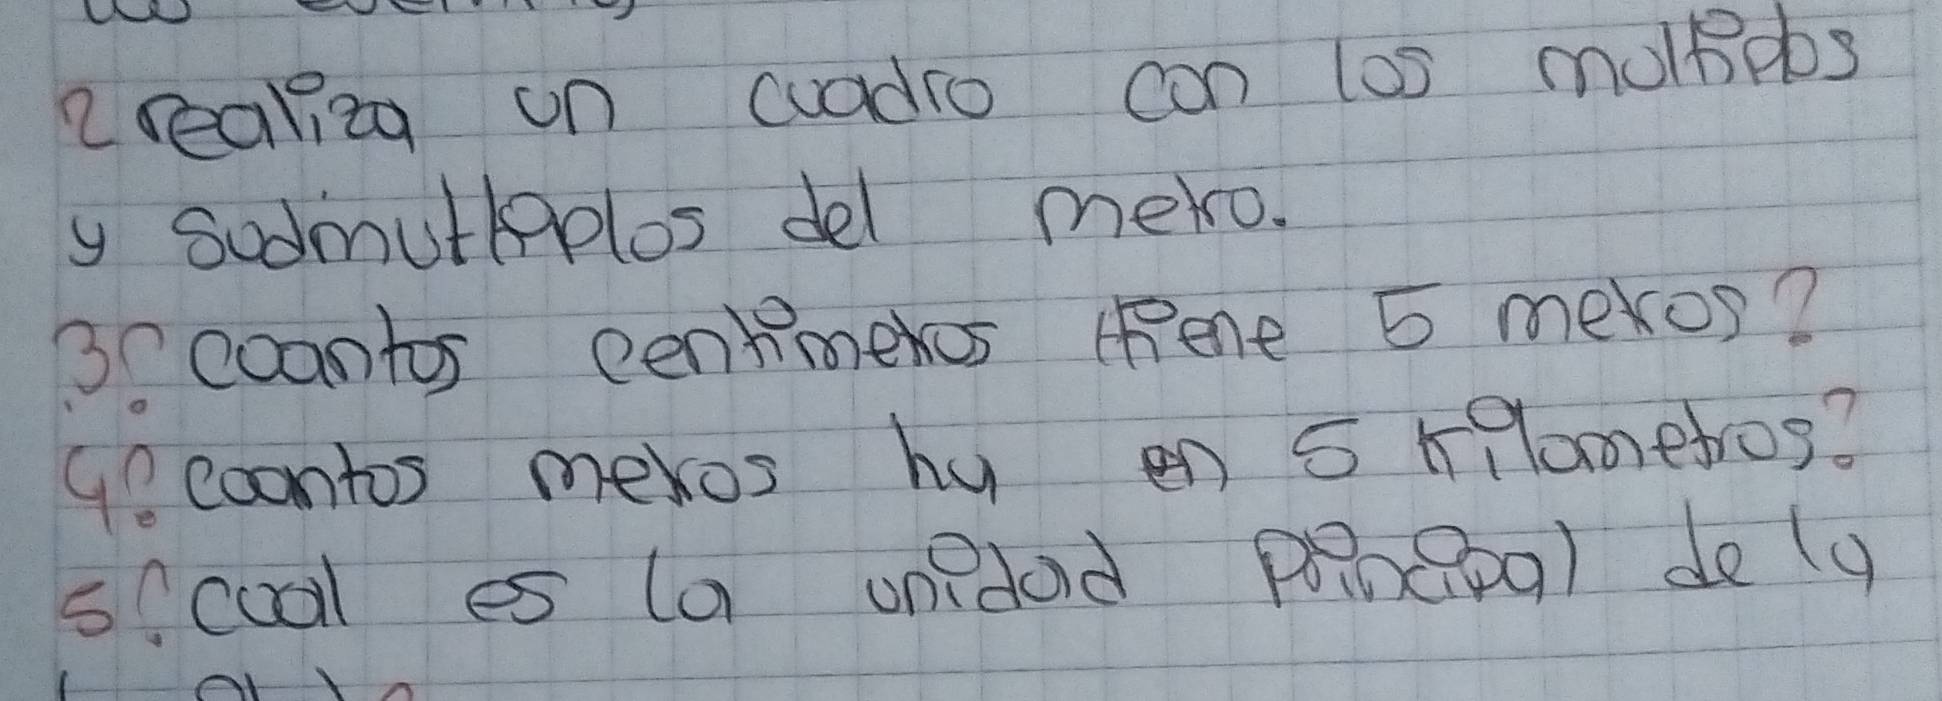 2 realiza un cuadro con los multiplos
y sudmutliplos del metro.
3¿ coantos centimetros tiene 5 metros?
4¿ coantos metros hy en 5 kilametros?
5¿ cual es la unidad principal de la